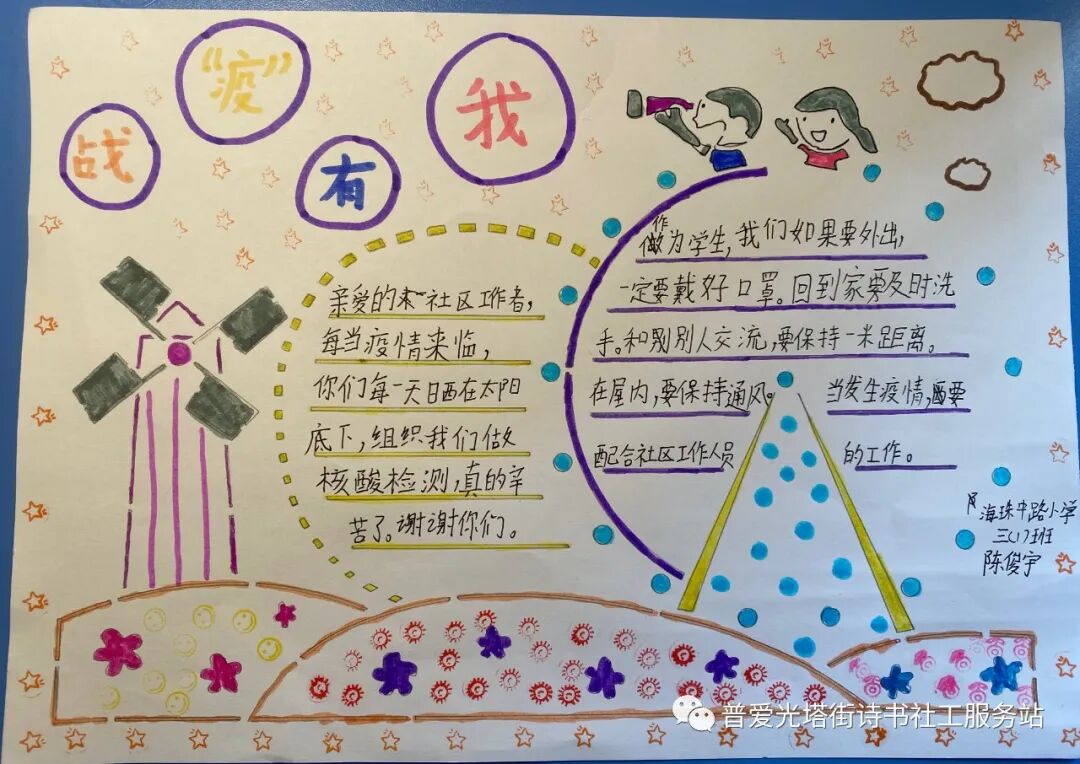 战“疫”有我
亲爱的社区工作者，
每当疫情来临，
你们每一天日晒在太阳
底下，组织我们做
核酸检测，真的辛
苦了。谢谢你们。
作
做为学生，我们如果要外出，
一定要戴好口罩。回到家要及时洗
手。和别人交流，要保持一米距离。
在屋内，要保持通风。当发生疫情，要
配合社区工作人员的工作。
海珠中路小学
三（1）班
陈俊宇
普爱光塔街诗书社工服务站